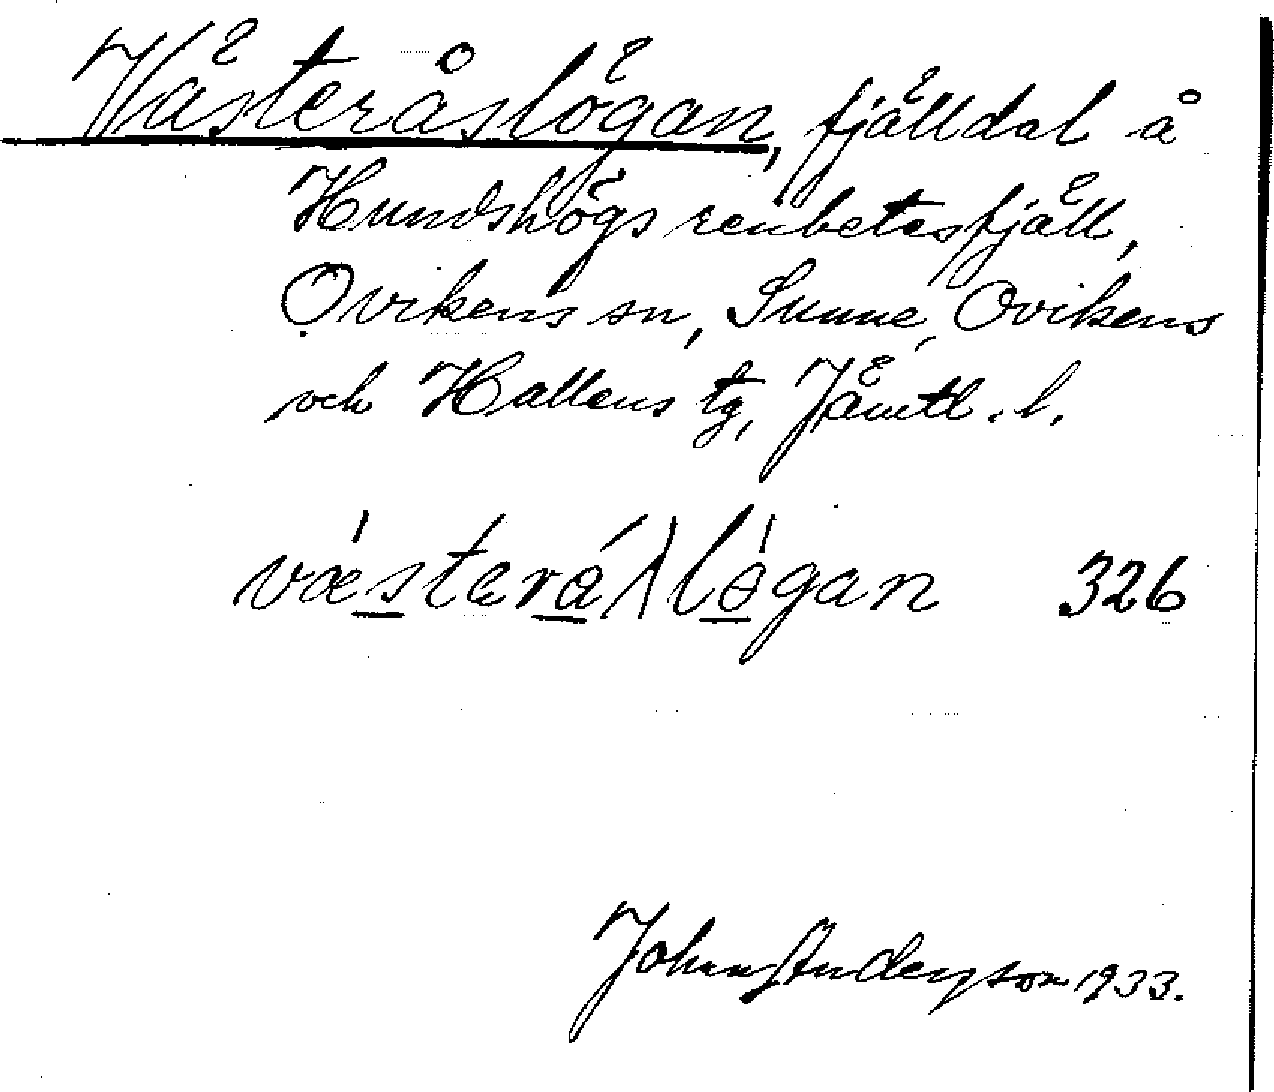 Västeråslögan, fjälldal å
Hundshögs renbetesfjäll,
Ovikens sn, Sunne, Ovikens
och Hallens tg, Jämtl. l.
326
John Anderson 1933.